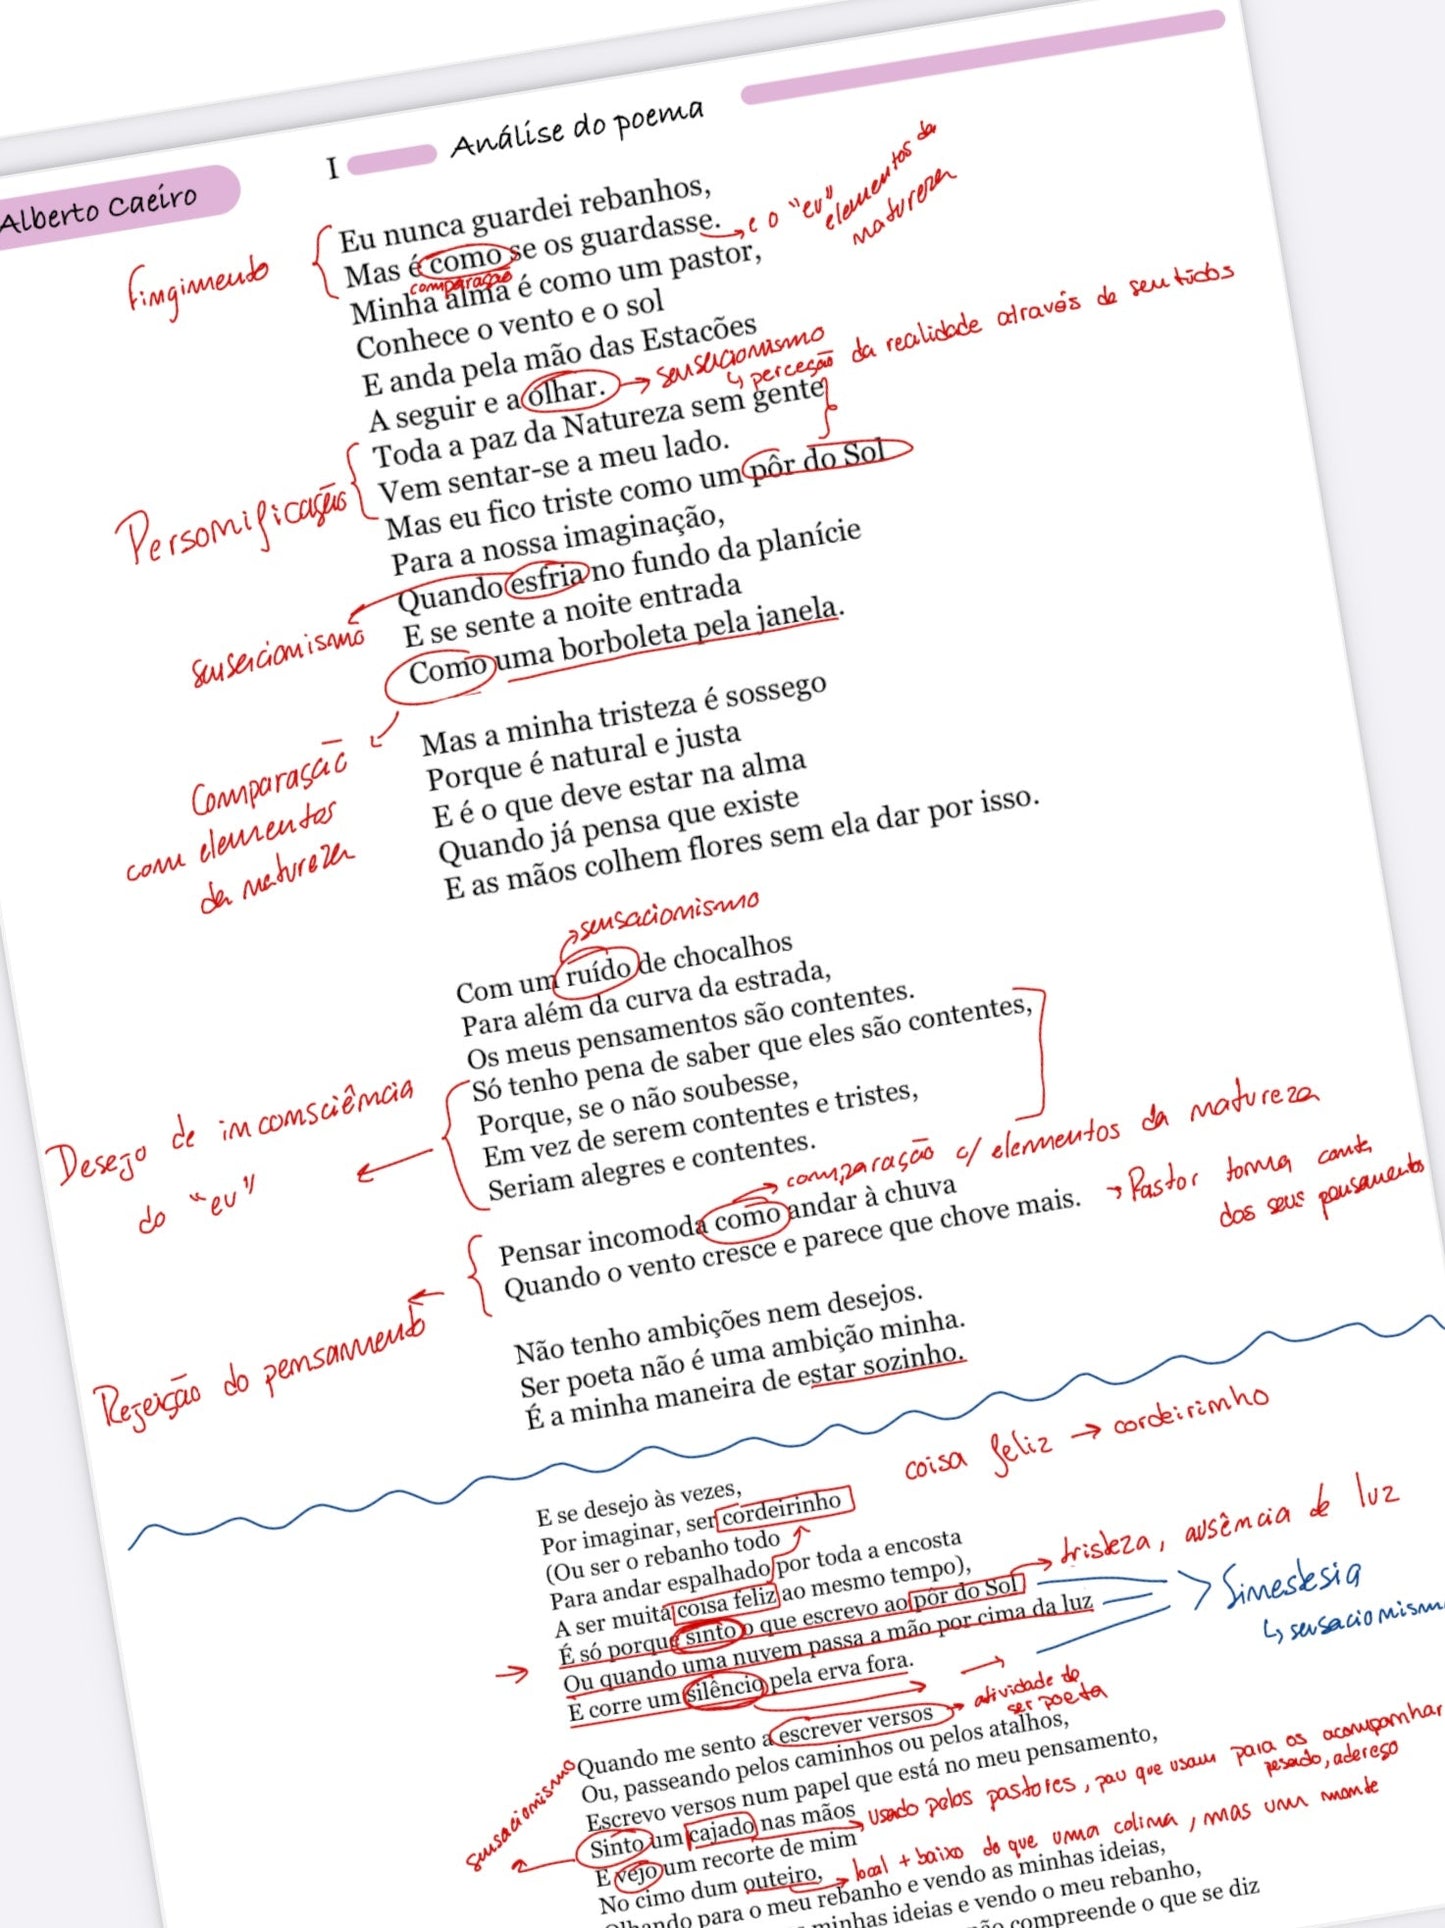 Alberto Caeiro
I
Análise do poema
Eu nunca guardei rebanhos,
Mas é como se os guardasse.
e o "eu"
elementos da
natureza
fingimento
comparação
Minha alma é como um pastor,
Conhece o vento e o sol
E anda pela mão das Estacões
A seguir e a olhar.
sensacionismo
perceção da realidade através de sentidos
Toda a paz da Natureza sem gente
Vem sentar-se a meu lado.
Personificação
Mas eu fico triste como um pôr do Sol
Para a nossa imaginação,
Quando esfria no fundo da planície
sensacionismo
E se sente a noite entrada
Como uma borboleta pela janela.
Comparação
com elementos
da natureza
Mas a minha tristeza é sossego
Porque é natural e justa
E é o que deve estar na alma
Quando já pensa que existe
E as mãos colhem flores sem ela dar por isso.
sensacionismo
Com um ruído de chocalhos
Para além da curva da estrada,
Os meus pensamentos são contentes.
Só tenho pena de saber que eles são contentes,
Porque, se o não soubesse,
Em vez de serem contentes e tristes,
Seriam alegres e contentes.
Desejo de inconsciência
do "eu"
comparação c/ elementos da natureza
Pensar incomoda como andar à chuva
Quando o vento cresce e parece que chove mais.
Pastor toma conta
dos seus pensamentos
Rejeição do pensamento
Não tenho ambições nem desejos.
Ser poeta não é uma ambição minha.
É a minha maneira de estar sozinho.
coisa feliz → cordeirinho
E se desejo às vezes,
Por imaginar, ser cordeirinho
(Ou ser o rebanho todo
Para andar espalhado por toda a encosta
A ser muita coisa feliz ao mesmo tempo),
tristeza, ausência de luz
É só porque sinto o que escrevo ao pôr do Sol
Sinestesia
Ou quando uma nuvem passa a mão por cima da luz
E corre um silêncio pela erva fora.
atividade de
ser poeta
Quando me sento a escrever versos
Ou, passeando pelos caminhos ou pelos atalhos,
Escrevo versos num papel que está no meu pensamento,
Sinto um cajado nas mãos
usado pelos pastores, pau que usam para os acompanhar
pesado, adereso
sensacionismo
E vejo um recorte de mim
No cimo dum outeiro,
local + baixo do que uma colina, mas um monte
para o meu rebanho e vendo as minhas ideias,
ideias e vendo o meu rebanho,
compreende o que se diz